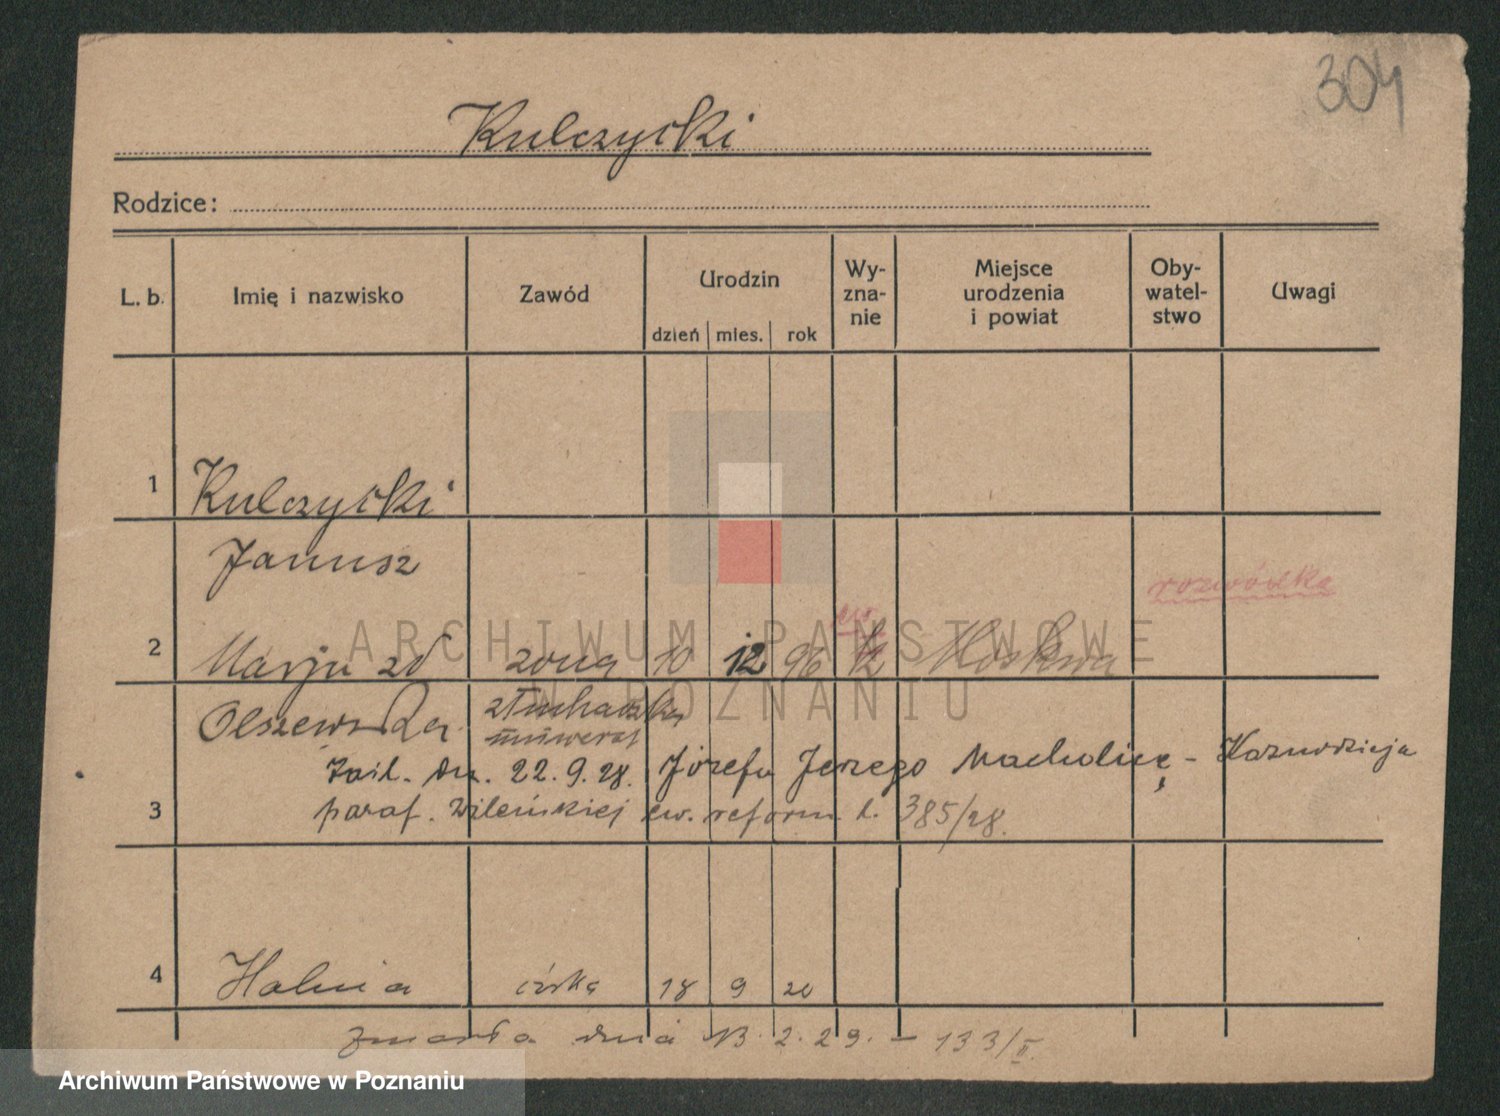 304
Kulczycki
Rodzice:
L. b. Imię i nazwisko Zawód Urodzin dzień mies. rok Wy-zna-nie Miejsce urodzenia i powiat Oby-watel-stwo Uwagi
1 Kulczycki
Janusz
rozwódka
2 Marja zd żona 10 12 96 Moskwa
Olszewska słuchaczka
uniwersyt
22.9.28. Józefa Jerzego - Kaznodzieja
3 paraf. Wileńskiej ew. reform. l. 385/28.
4 Halina córka 18 9 20
zmarła dnia 13.2.29. - 133/II.
ARCHIWUM PAŃSTWOWE
W POZNANIU
Archiwum Państwowe w Poznaniu